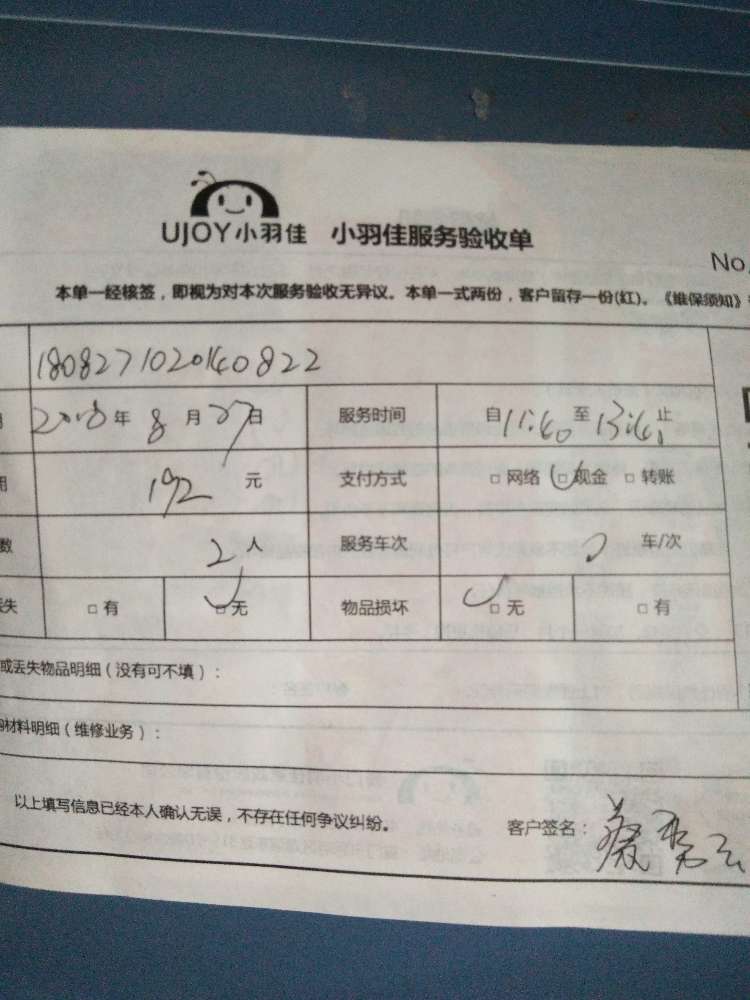 UJOY小羽佳 小羽佳服务验收单
No.
本单一经核签，即视为对本次服务验收无异议。本单一式两份，客户留存一份(红)。《维保须知》
180827102040822
2018年8月27日 服务时间 自11:40至13:40止
192元 支付方式 □网络 □现金 □转账
数 2人 服务车次 2车/次
失 □有 □无 物品损坏 □无 □有
或丢失物品明细（没有可不填）：
材料明细（维修业务）：
以上填写信息已经本人确认无误，不存在任何争议纠纷。 客户签名：